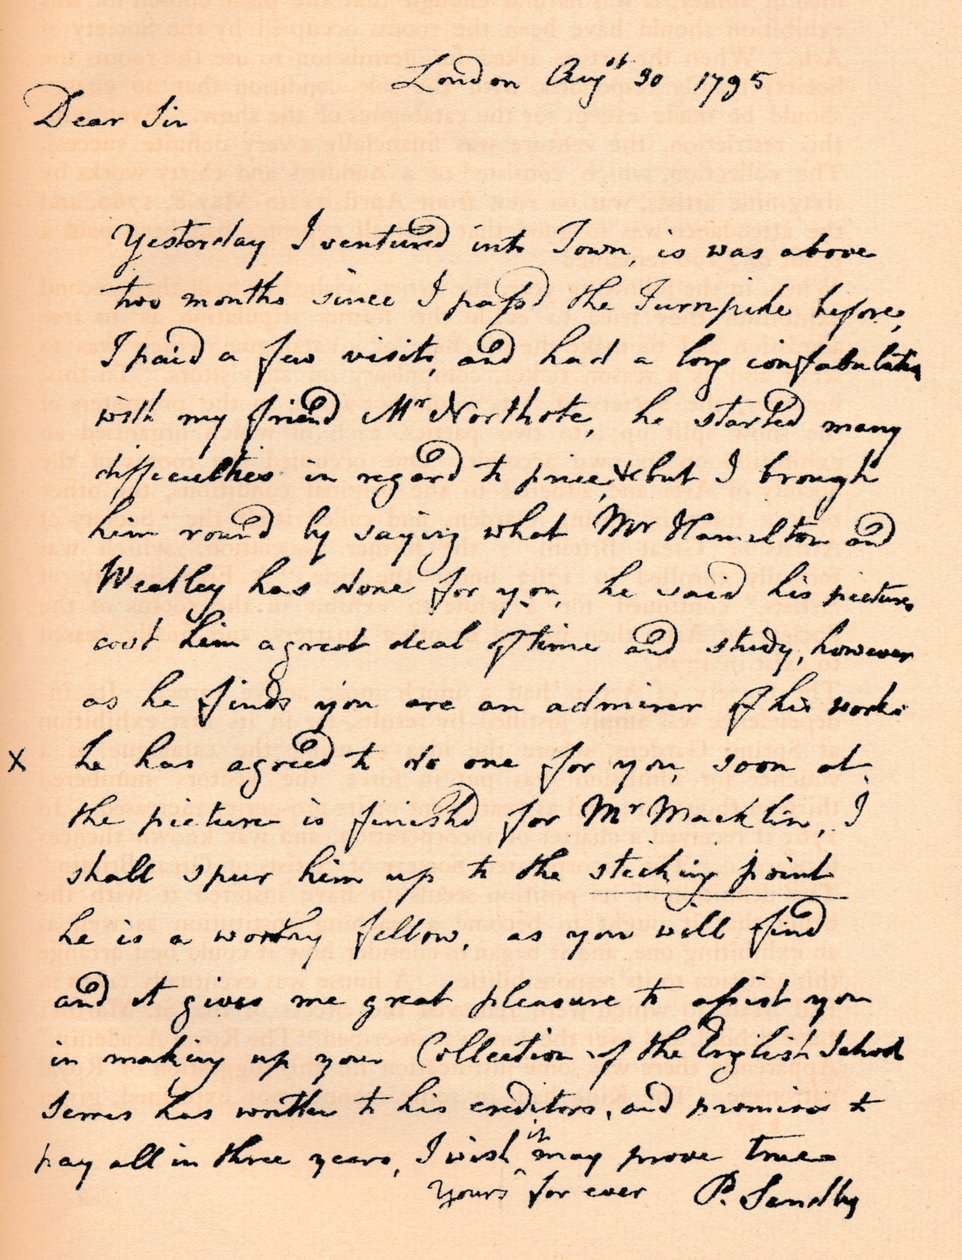 London Augst 30 1795
Dear Sir
Yesterday I ventured into Town, is was above
two months since I pass'd the Turnpike before,
I paid a few visits, and had a long confabulation
with my friend Mr Northote, he started many
difficulties in regard to price, & but I brough
him round by saying what Mr Hamilton and
Weatley has done for you, he said his pictures
cost him a great deal of time and study, however
as he finds you are an admirer of his works
x he has agreed to do one for you, soon at
the picture is finishd for Mr Macklin, I
shall spur him up to the sticking point
he is a worthy fellow, as you will find
and it gives me great pleasure to assist you
in making up your Collection of the English School
Serres has written to his creditors, and promises to
pay all in three years, I wish it may prove true
Yours for ever P. Sandby